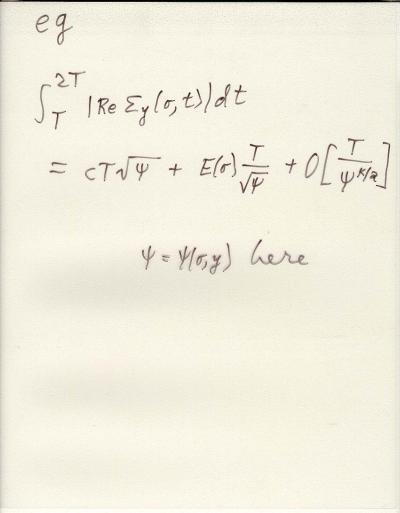 eg
∫_T^{2T} |Re Σ_y(σ,t)| dt
= cT√ψ + E(σ) T/√ψ + O[T/ψ^{k/2}]
ψ = ψ(σ,y) here